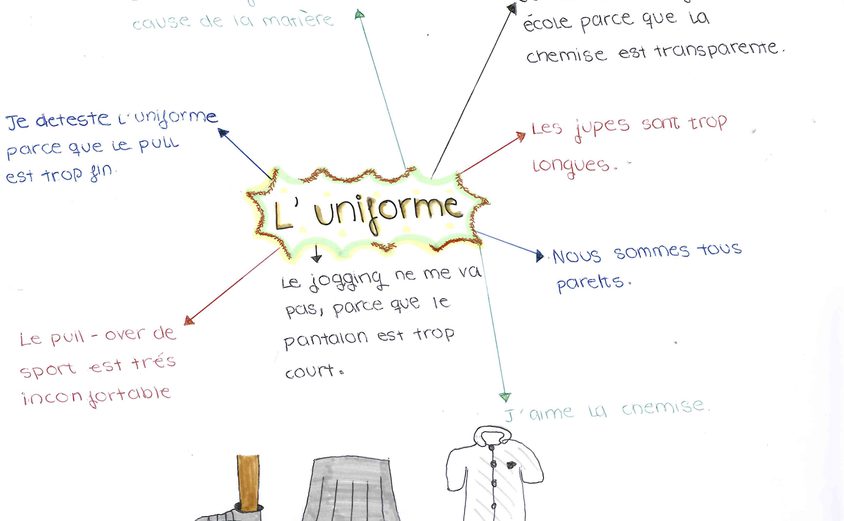 cause de la matière
école parce que la
chemise est transparente.
Je deteste l'uniforme
parce que le pull
est trop fin.
Les jupes sont trop
longues.
L'uniforme
Nous sommes tous
pareils.
Le jogging ne me va
pas, parce que le
pantalon est trop
court.
Le pull-over de
sport est trés
inconfortable
J'aime la chemise.